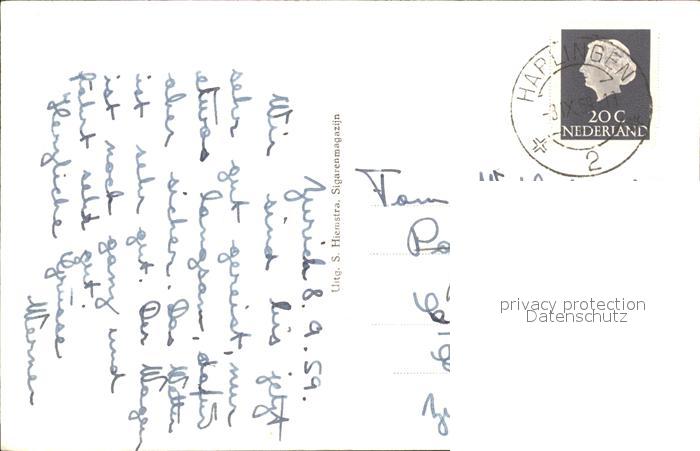 Zurich 8.9.59.
Wir sind bis jetzt
sehr gut gereist, nur
etwas langsam, dafür
aber sicher. Das Wetter
ist sehr gut. Der Wagen
ist noch ganz und
fährt sehr gut.
Herzliche Grüsse
Werner
Uitg. S. Hiemstra, Sigarenmagazijn
HARLINGEN
2
20 C
NEDERLAND
Fam
privacy protection
Datenschutz